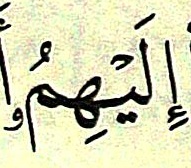 إِلَيْهِمُ